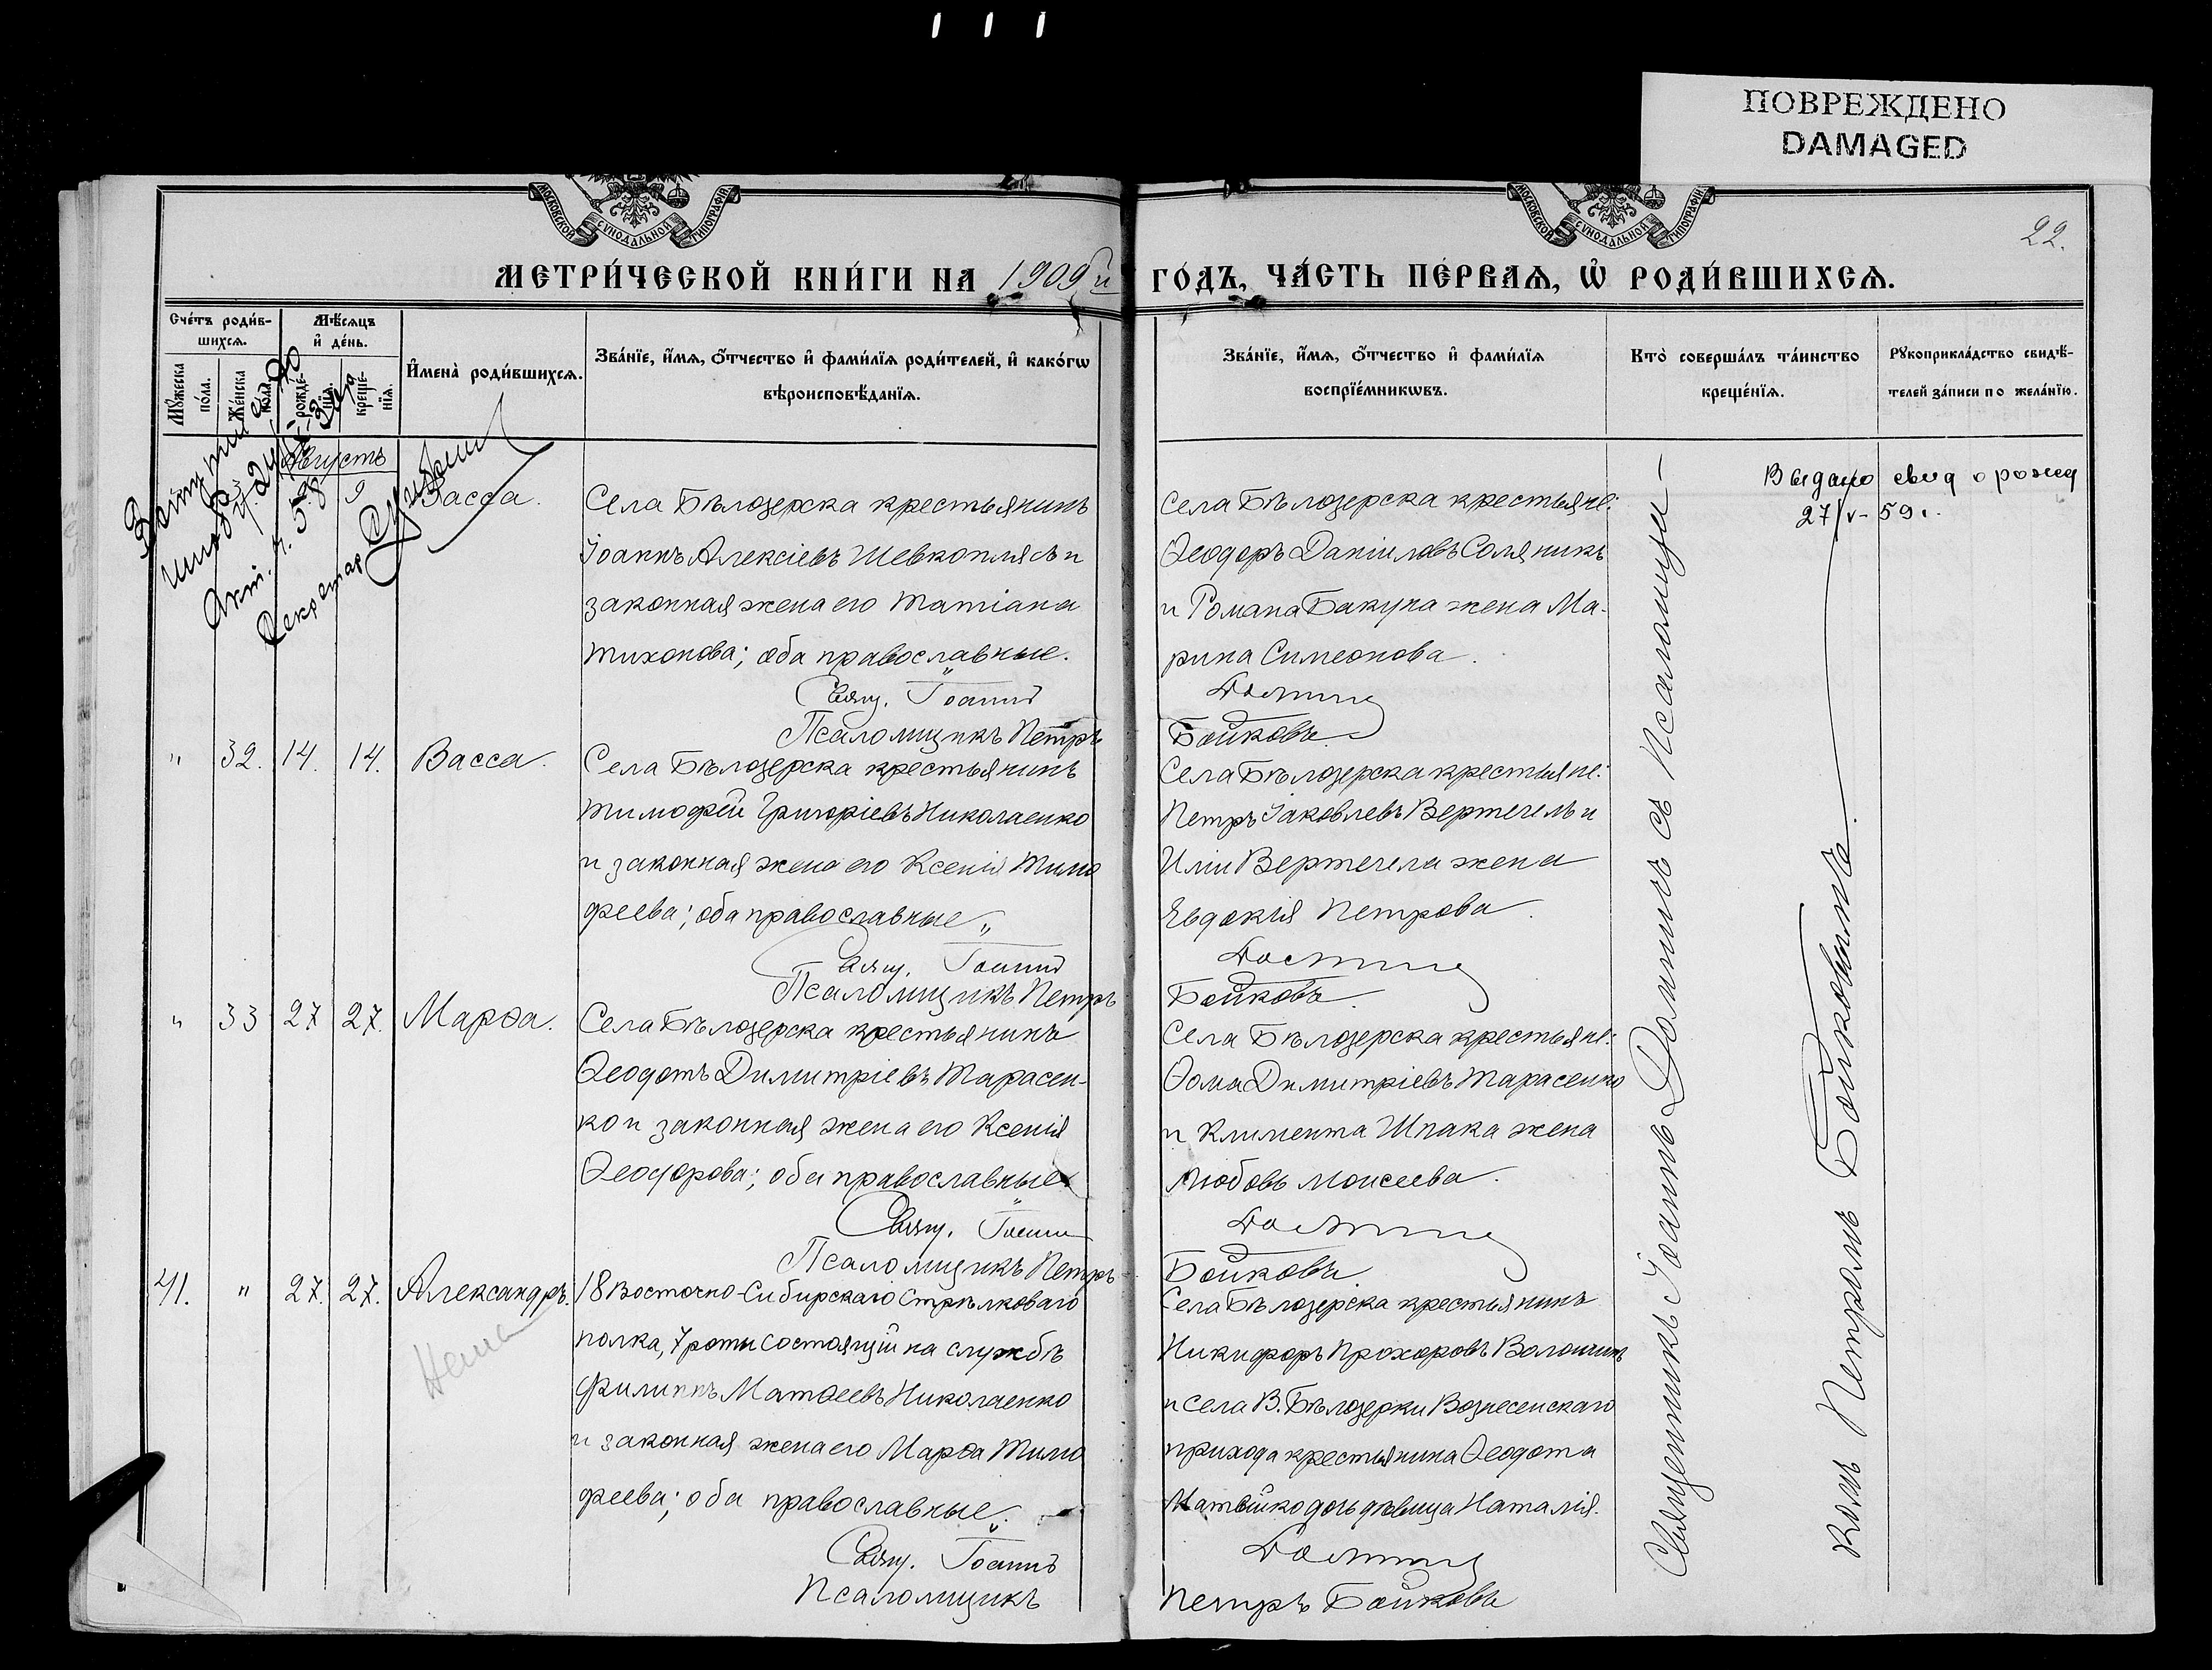 ПОВРЕЖДЕНО
DAMAGED
МОСКОВСКОЙ СѴНОДАЛЬНОЙ ТИПОГРАФІИ
МОСКОВСКОЙ СѴНОДАЛЬНОЙ ТИПОГРАФІИ
22.
МЕТРИ́ЧЕСКОЙ КНИ́ГИ НА 1909й ГО́ДЪ, ЧА́СТЬ ПЕ́РВАѦ, Ѡ҆ РОДИ́ВШИХСѦ.
Сче́тъ роди́в-
шихсѧ.
Мꙋ́жеска
по́ла.
Же́нска
по́ла.
Мѣ́сѧцъ
и҆ де́нь.
рожде́-
нїѧ.
креще́-
нїѧ.
И҆мена̀ роди́вшихсѧ.
Зва́нїе, и҆́мѧ, ѻ҆́тчество и҆ фами́лїѧ роди́телей, и҆ како́гѡ
вѣроисповѣ́данїѧ.
Зва́нїе, и҆́мѧ, ѻ҆́тчество и҆ фами́лїѧ
воспрїе́мникѡвъ.
Кто̀ соверша́лъ та́инство
креще́нїѧ.
Рꙋкоприкла́дство свидѣ́-
телей за́писи по жела́нїю.
Августъ
8 9 Васса.
Села Бѣлозерска крестьянинъ
Іоаннъ Алексіевъ Шевкоплясъ и
законная жена его Татіана
Тихонова; оба православные.
Свящ. Іоаннъ
Псаломщикъ Петръ
Села Бѣлозерска крестьяне:
Ѳеодоръ Даніиловъ Соляникъ
и Романа Бакума жена Ма-
рина Симеонова.
Бойковъ.
Выдано свид о рожд
27/v-59г.
" 32. 14. 14. Васса.
Села Бѣлозерска крестьянинъ
Тимофей Григоріевъ Николаенко
и законная жена его Ксенія Тимо
феева; оба православные"
Свящ. Іоаннъ
Псаломщикъ Петръ
Села Бѣлозерска крестьяне:
Петръ Іаковлевъ Вертегелъ и
Иліи Вертегела жена
Евдокія Петрова.
Бойковъ.
" 33 27 27. Марѳа.
Села Бѣлозерска крестьянинъ
Ѳеодотъ Димитріевъ Тарасен-
ко и законная жена его Ксенія
Ѳеодорова; оба православные
Свящ. Іоаннъ
Псаломщикъ Петръ
Села Бѣлозерска крестьяне:
Ѳома Димитріевъ Тарасенко
и Климента Шпака жена
Любовь Моисеева.
Бойковъ.
41. " 27. 27. Александръ.
18 Восточно-Сибирскаго Стрѣлковаго
полка, 7 роты состоящій на службѣ
Филиппъ Матѳеевъ Николаенко
и законная жена его Марѳа Тимо
феева; оба православные.
Свящ. Іоаннъ
Псаломщикъ
Села Бѣлозерска крестьянинъ
Никифоръ Прохоровъ Волошинъ
и села В. Бѣлозерки Вознесенскаго
прихода крестьянина Ѳеодота
Матвійко дочь дѣвица Наталія.
Петръ Бойковъ
Священникъ Іоаннъ съ Псаломщи-
комъ Петромъ Бойковымъ.